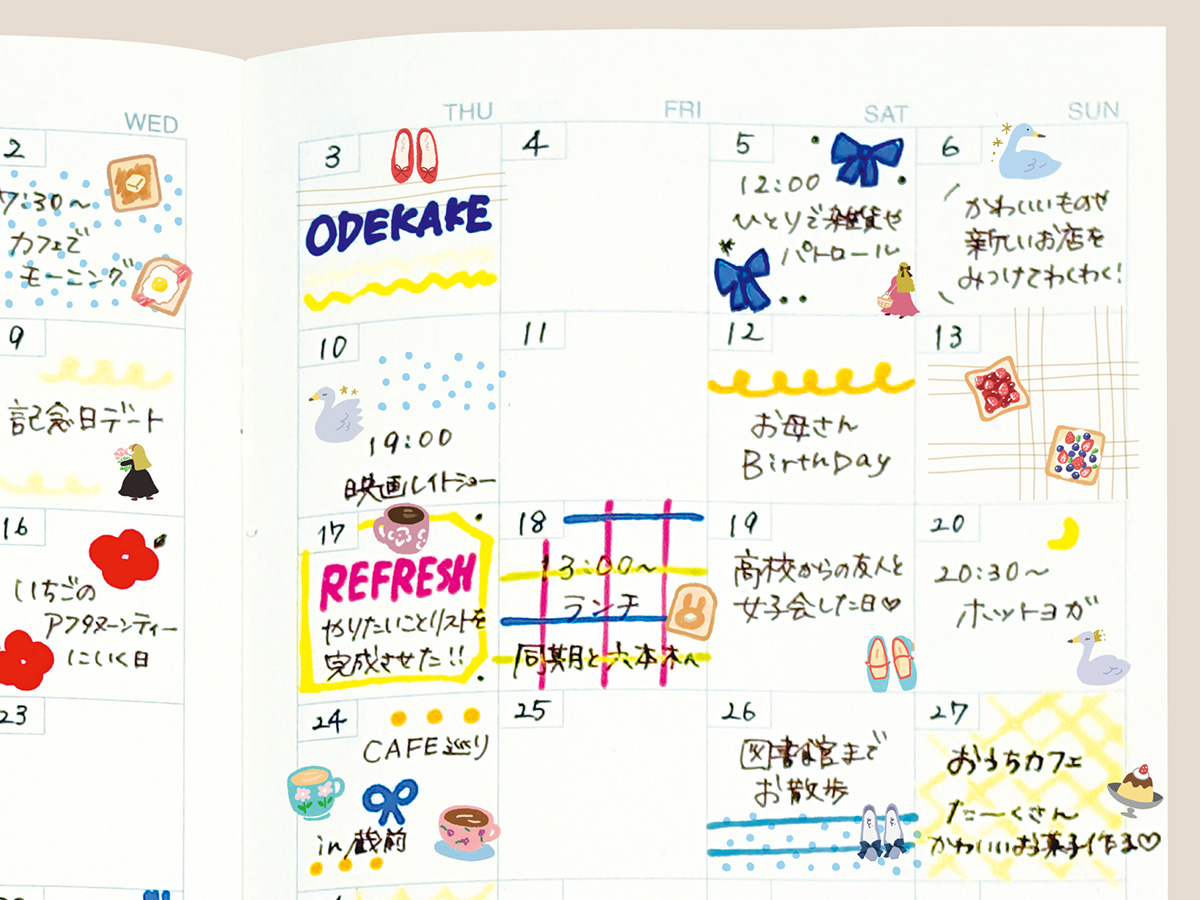 WED
THU
FRI
SAT
SUN
2
7:30〜
カフェで
モーニング
3
ODEKAKE
4
5
12:00
ひとりで雑貨や
パトロール
6
かわいいものや
新しいお店を
みつけてわくわく!
9
記念日デート
10
19:00
映画レイトショー
11
12
お母さん
BirthDay
13
16
いちごの
アフタヌーンティー
にいく日
17
REFRESH
やりたいことリストを
完成させた!!
18
13:00〜
ランチ
同期と六本木へ
19
高校からの友人と
女子会した日♡
20
20:30〜
ホットヨガ
23
24
CAFE巡り
in蔵前
25
26
図書館まで
お散歩
27
おうちカフェ
たーくさん
かわいいお菓子作る♡